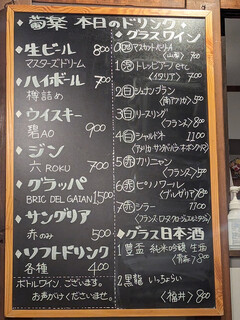 葡楽 本日のドリンク
◆生ビール 800
マスターズドリーム
◆ハイボール 700
樽詰め
◆ウイスキー
碧AO 900
◆ジン
六 ROKU 700
◆グラッパ
BRIC DEL GAIAN 1500
◆サングリア
赤のみ 500
◆ソフトドリンク
各種 400
ボトルワイン、ございます。
お声がけくださいませ。
◆グラスワイン
マスカットベリーA
700
1 トレッビアーノ etc
〈イタリア〉 700
2 シュナンブラン
〈南アフリカ〉 500
3 リースリング
〈フランス〉 800
4 シャルドネ 1100
5 カリニャン
〈フランス〉 700
6 ピノノワール
〈ブルガリア〉 800
7 シラー 1100
◆グラス日本酒
1 豊盃 純米吟醸 生酒
〈青森〉 800
2 黒龍 いっちょらい
〈福井〉 800